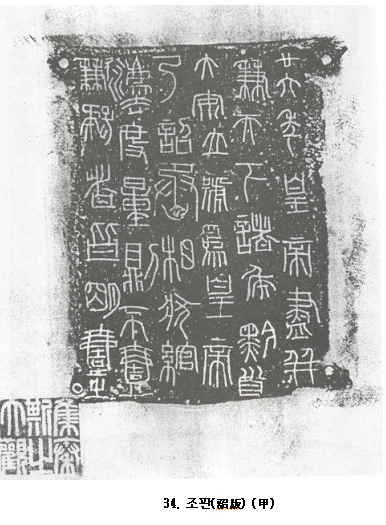 廿六年皇帝盡并
兼天下諸侯黔首
大安立號為皇帝
乃詔丞相狀綰
灋度量則不壹
歉疑者皆明壹之
集秦
斯之
大觀
34. 조판(詔版) (甲)